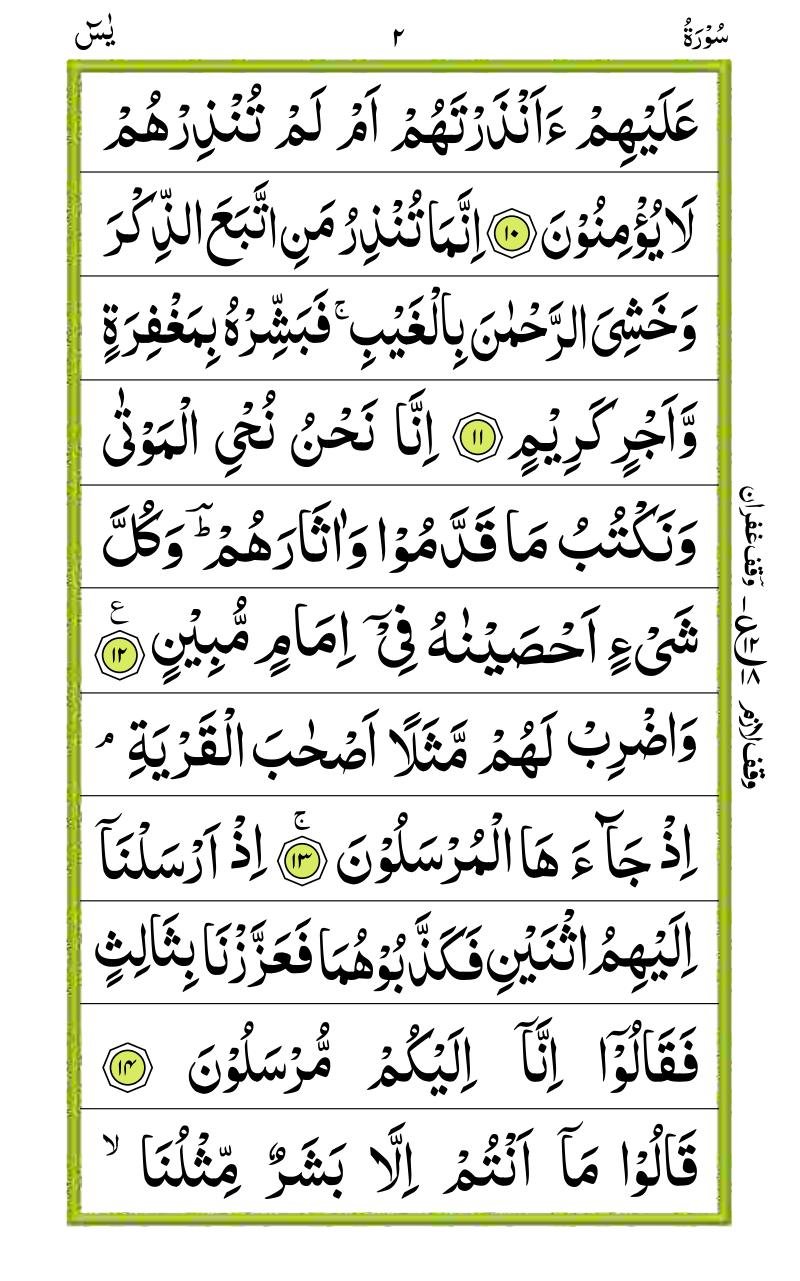 سُوْرَةُ ٢ يٰسٓ
عَلَيْهِمْ ءَاَنْذَرْتَهُمْ اَمْ لَمْ تُنْذِرْهُمْ
لَا يُؤْمِنُوْنَ ١٠ اِنَّمَا تُنْذِرُ مَنِ اتَّبَعَ الذِّكْرَ
وَخَشِيَ الرَّحْمٰنَ بِالْغَيْبِ ۚ فَبَشِّرْهُ بِمَغْفِرَةٍ
وَّاَجْرٍ كَرِيْمٍ ١١ اِنَّا نَحْنُ نُحْيِ الْمَوْتٰى
وَنَكْتُبُ مَا قَدَّمُوْا وَاٰثَارَهُمْ ؕ وَكُلَّ
شَيْءٍ اَحْصَيْنٰهُ فِيْۤ اِمَامٍ مُّبِيْنٍ ١٢ ع
وَاضْرِبْ لَهُمْ مَّثَلًا اَصْحٰبَ الْقَرْيَةِ ۘ
اِذْ جَآءَهَا الْمُرْسَلُوْنَ ١٣ ۚ اِذْ اَرْسَلْنَاۤ
اِلَيْهِمُ اثْنَيْنِ فَكَذَّبُوْهُمَا فَعَزَّزْنَا بِثَالِثٍ
فَقَالُوْۤا اِنَّاۤ اِلَيْكُمْ مُّرْسَلُوْنَ ١٤
قَالُوْا مَاۤ اَنْتُمْ اِلَّا بَشَرٌ مِّثْلُنَا ۙ
وقف غفران
وقف لازم